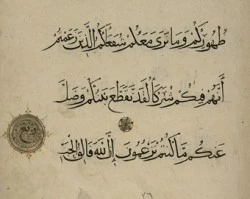 ظُهُورِكُمْ وَمَا نَرَىٰ مَعَكُمْ شُفَعَاءَكُمُ الَّذِينَ زَعَمْتُمْ
أَنَّهُمْ فِيكُمْ شُرَكَاءُ لَقَدْ تَقَطَّعَ بَيْنَكُمْ وَضَلَّ
عَنْكُمْ مَا كُنْتُمْ تَزْعُمُونَ إِنَّ اللَّهَ فَالِقُ الْحَبِّ